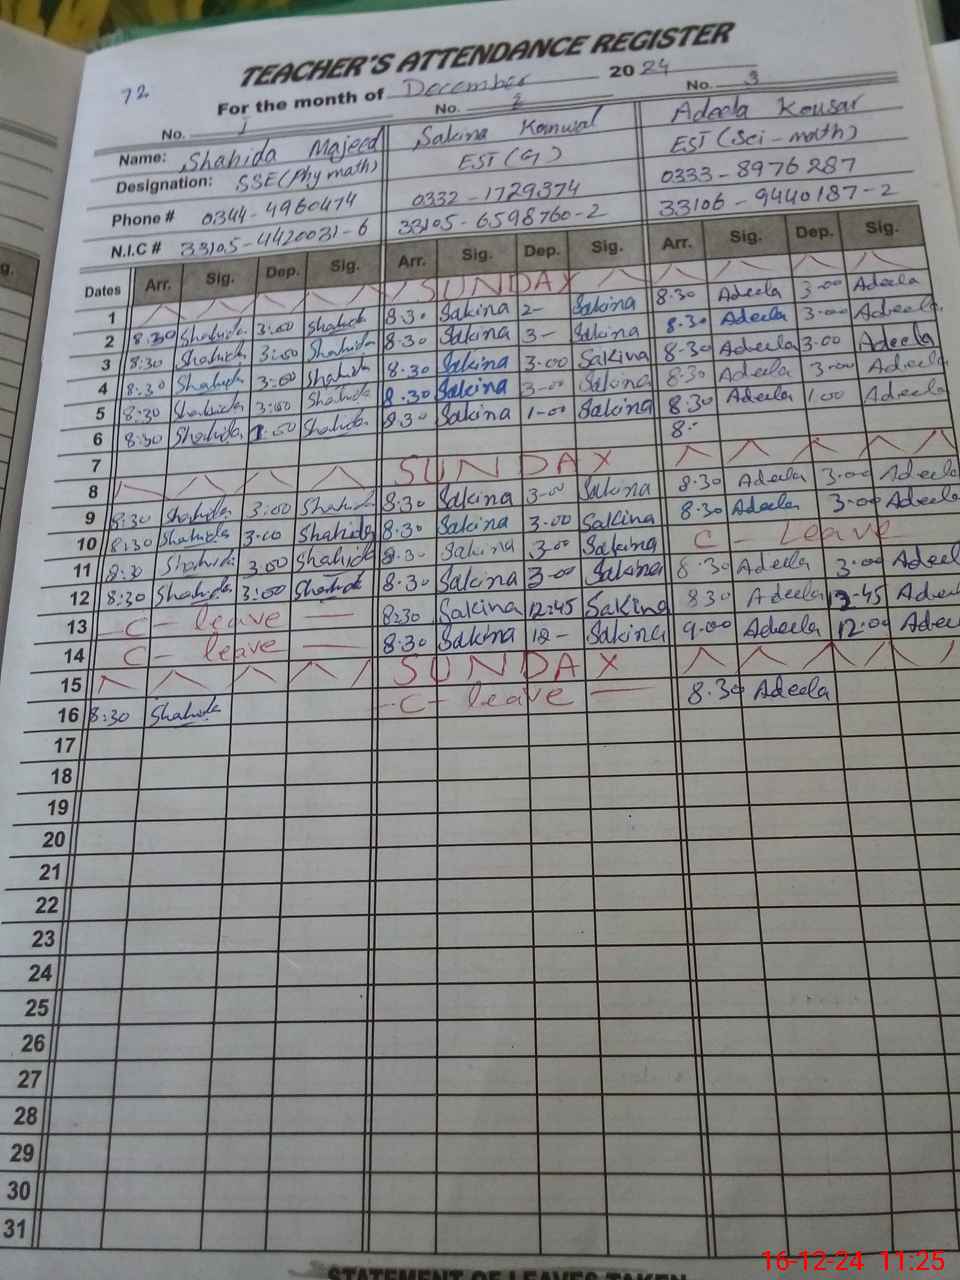 TEACHER'S ATTENDANCE REGISTER
72
For the month of December 2024
No. 1 No. 2 No. 3
Name: Shahida Majeed Sakina Kanwal Adeela Kousar
Designation: SSE(Phy math) EST(G) EST(Sci-math)
Phone # 0344-4960474 0332-1729374 0333-8976287
N.I.C # 33105-4420031-6 33105-6598760-2 33106-9440187-2
g.
Dates Arr. Sig. Dep. Sig. Arr. Sig. Dep. Sig. Arr. Sig. Dep. Sig.
1 SUNDAY
2 8:30 Shahida 3:00 Shahida 8.30 Sakina 2- Sakina 8.30 Adeela 3-00 Adeela
3 8:30 Shahida 3:00 Shahida 8.30 Sakina 3- Sakina 8.30 Adeela 3-00 Adeela
4 8:30 Shahida 3:00 Shahida 8.30 Sakina 3.00 Sakina 8-30 Adeela 3-00 Adeela
5 8:30 Shahida 3:00 Shahida 8.30 Sakina 3-00 Sakina 8.30 Adeela 3-00 Adeela
6 8:30 Shahida 1:00 Shahida 8.30 Sakina 1-00 Sakina 8.30 Adeela 1.00 Adeela
7 8:
8 SUNDAY
9 8:30 Shahida 3:00 Shahida 8.30 Sakina 3-00 Sakina 8.30 Adeela 3-00 Adeela
10 8:30 Shahida 3:00 Shahida 8.30 Sakina 3.00 Sakina 8.30 Adeela 3-00 Adeela
11 8:30 Shahida 3:00 Shahida 8.30 Sakina 3-00 Sakina C - Leave
12 8:30 Shahida 3:00 Shahida 8.30 Sakina 3-00 Sakina 8.30 Adeela 3-00 Adeel
13 C - leave 8:30 Sakina 12:45 Sakina 8.30 Adeela 12-45 Adee
14 C - leave 8.30 Sakina 12- Sakina 9.00 Adeela 12:00 Adee
15 SUNDAY
16 8:30 Shahida C - leave 8.30 Adeela
17
18
19
20
21
22
23
24
25
26
27
28
29
30
31
STATEMENT OF LEAVES TAKEN
16-12-24 11:25